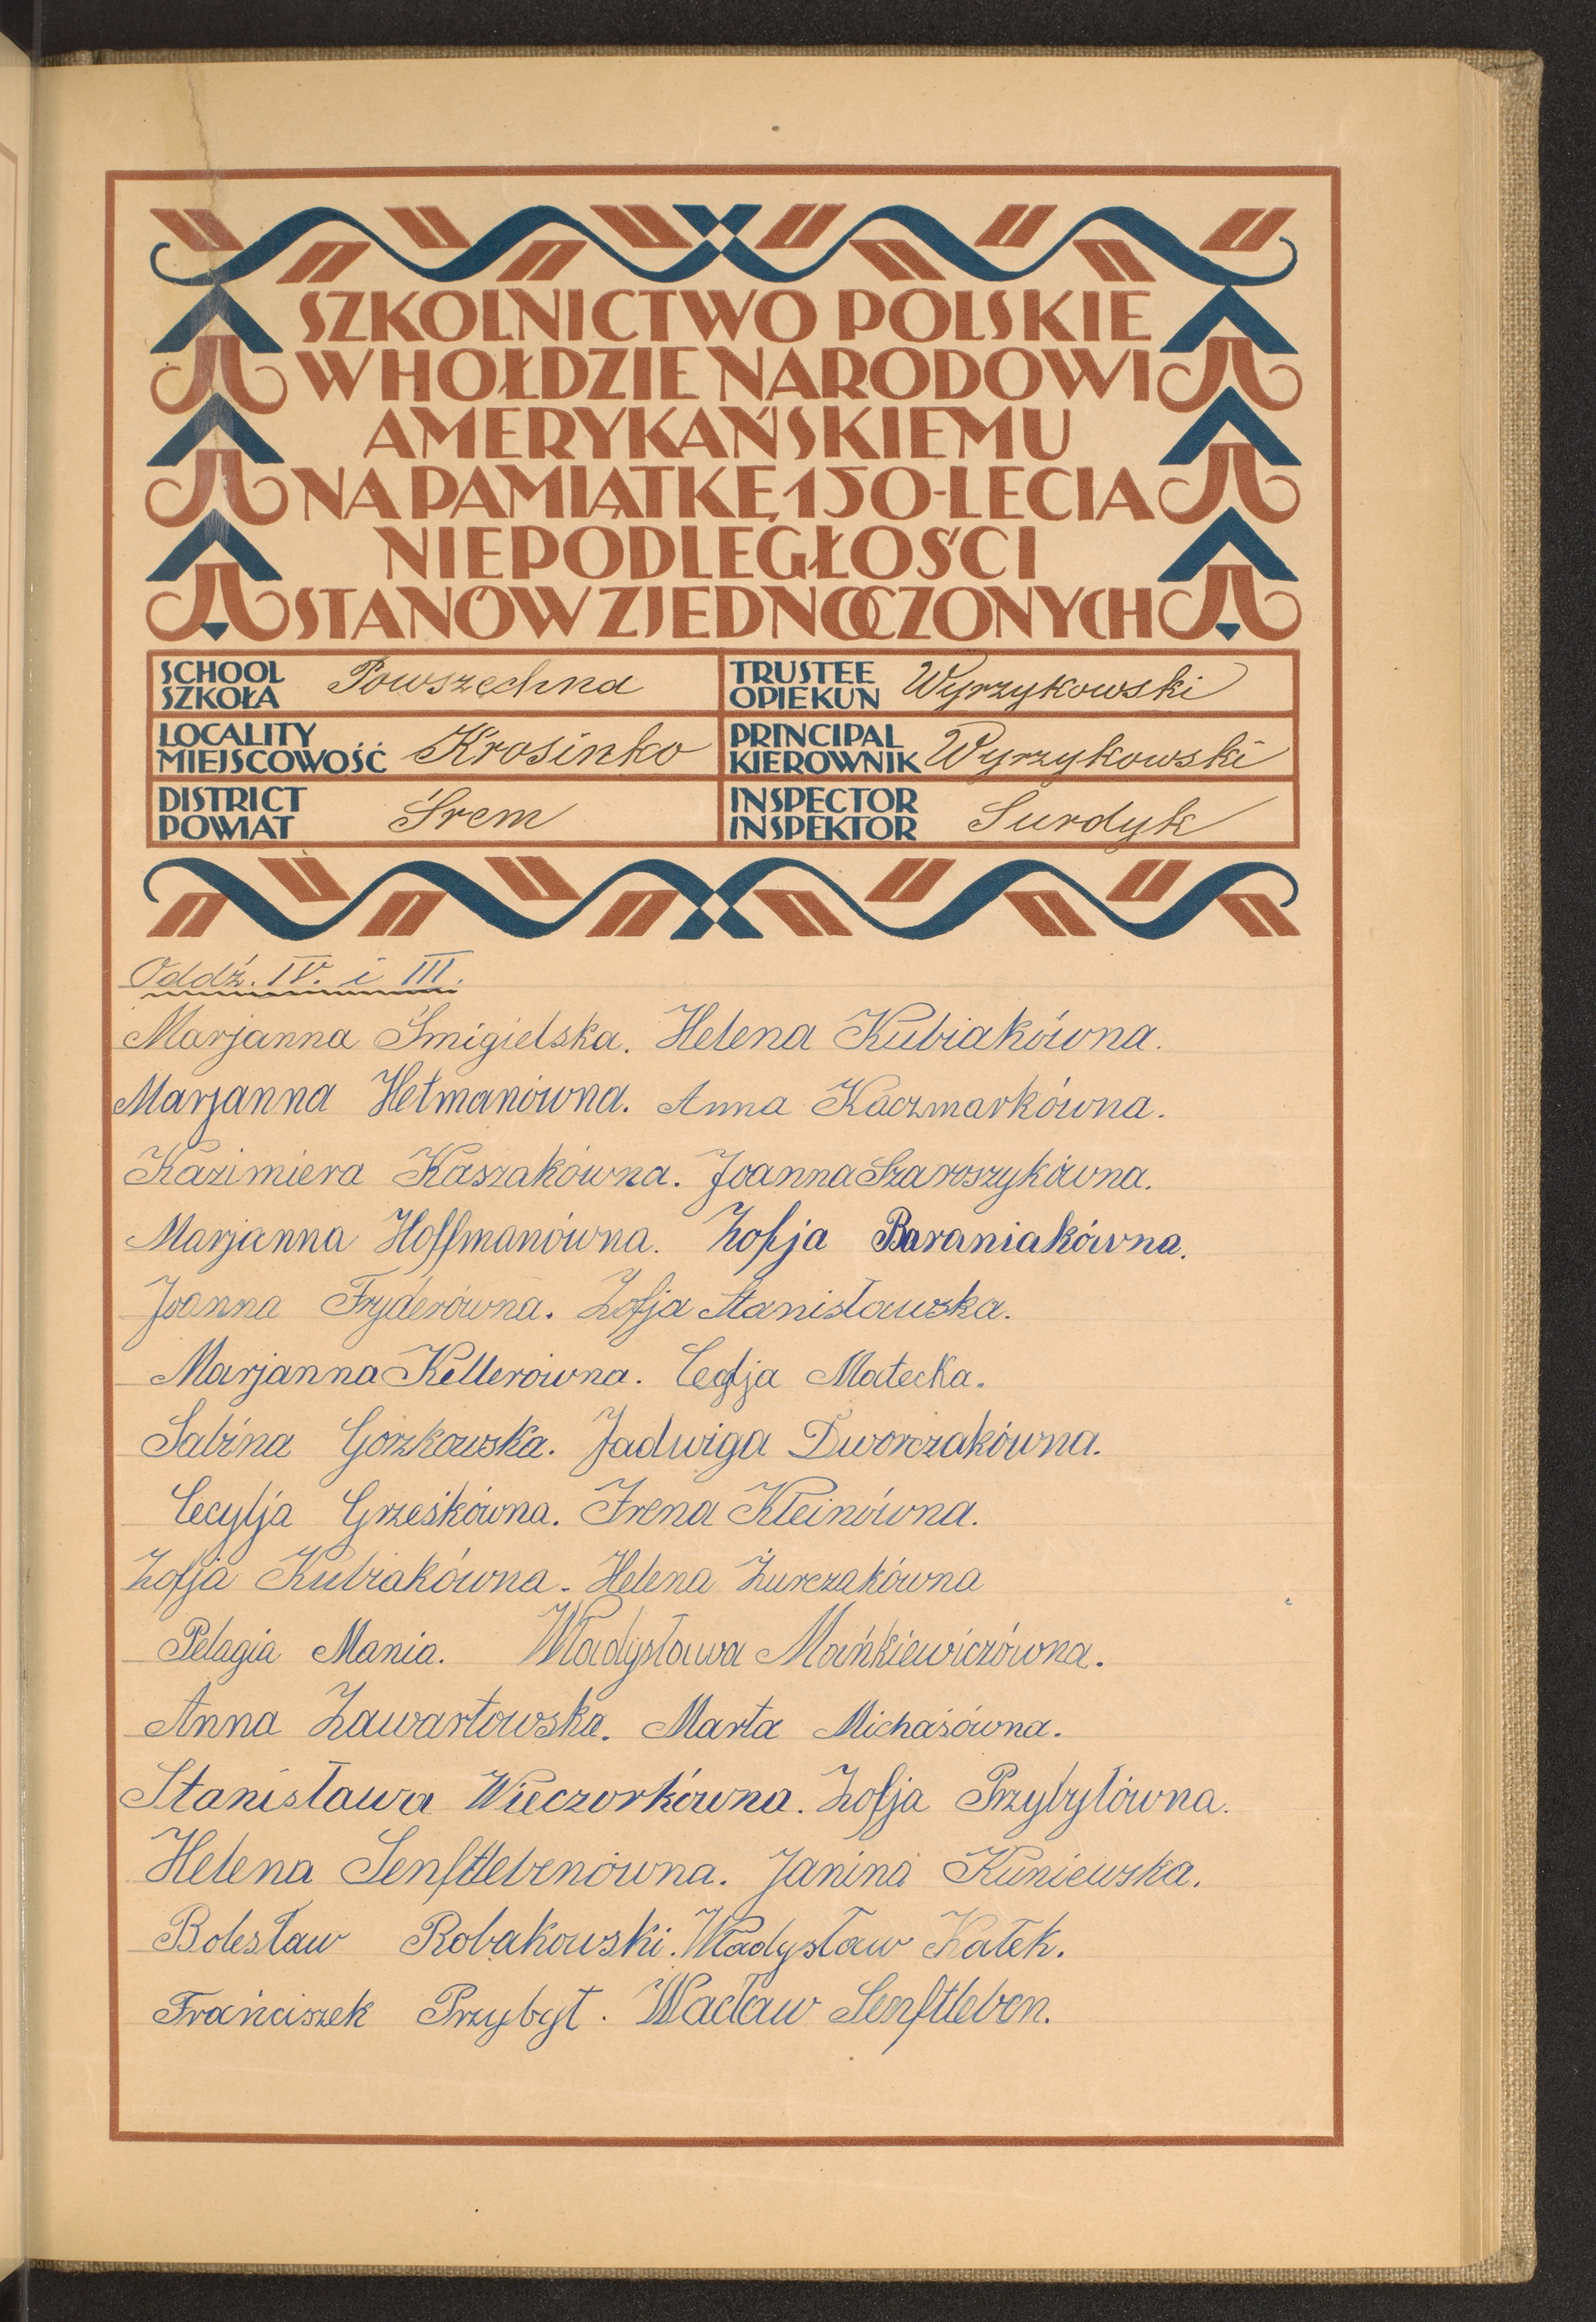 SZKOLNICTWO POLSKIE
W HOŁDZIE NARODOWI
AMERYKAŃSKIEMU
NA PAMIĄTKĘ 150-LECIA
NIEPODLEGŁOŚCI
STANÓW ZJEDNOCZONYCH
SCHOOL
SZKOŁA Powszechna
TRUSTEE
OPIEKUN Wyrzykowski
LOCALITY
MIEJSCOWOŚĆ Krosinko
PRINCIPAL
KIEROWNIK Wyrzykowski
DISTRICT
POWIAT Śrem
INSPECTOR
INSPEKTOR Surdyk
Oddź. IV. i III.
Marjanna Śmigielska. Helena Kubiakówna.
Marjanna Hetmanówna. Anna Kaczmarkówna.
Kazimiera Kaszakówna. Joanna Szaroszykówna.
Marjanna Hoffmanówna. Zofja Baraniakówna.
Joanna Fryderówna. Zofja Stanisławska.
Marjanna Kellerówna. Małecka.
Sabina Gorzkowska. Jadwiga Dworczakówna.
Cecylja Grześkówna. Irena Kleinówna.
Zofja Kubiakówna. Helena Żurczakówna
Pelagia Mania. Władysława Mańkiewiczówna.
Anna Zawartowska. Marta Michaśówna.
Stanisława Wieczorkówna. Zofja Przybyłówna.
Helena Senftlebenówna. Janina Kuniewska.
Bolesław Robakowski. Władysław Kałek.
Franciszek Przybył. Wacław Senftleben.